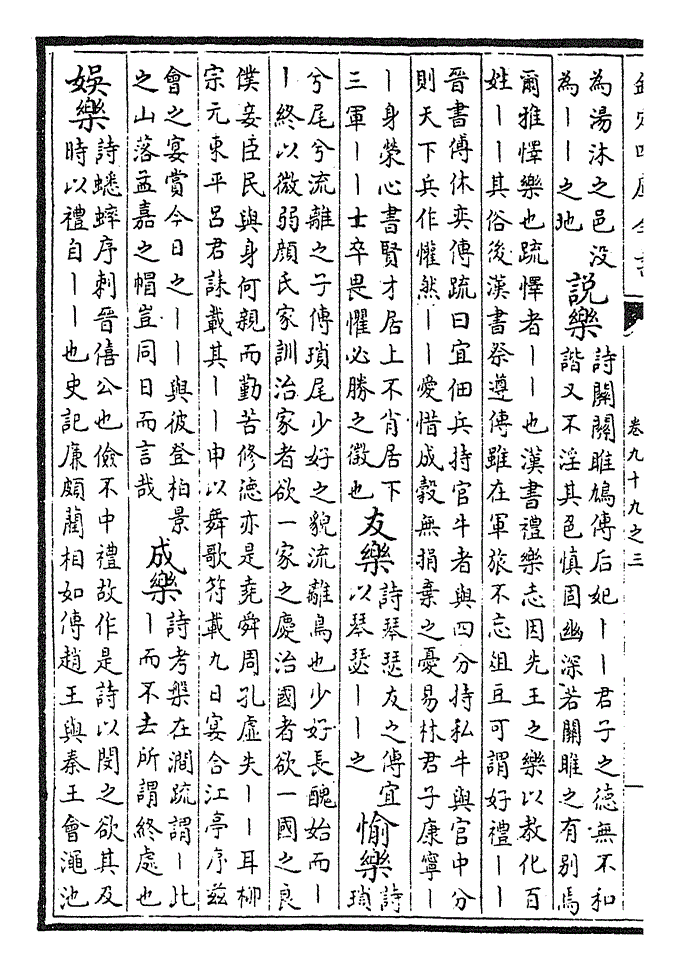 欽定四庫全書
卷九十九之三
為湯沐之邑没
為丨丨之地
說樂
詩關關雎鳩傳后妃丨丨君子之德無不和
諧又不淫其色慎固幽深若關雎之有别焉
爾雅懌樂也疏懌者丨丨也漢書禮樂志因先王之樂以教化百
姓丨丨其俗後漢書祭遵傳雖在軍旅不忘俎豆可謂好禮丨丨
晉書傅休奕傳疏曰宜佃兵持官牛者與四分持私牛與官中分
則天下兵作懽然丨丨愛惜成穀無捐棄之憂易林君子康寧丨
丨身榮心書賢才居上不肖居下
三軍丨丨士卒畏懼必勝之徵也
友樂
詩琴瑟友之傳宜
以琴瑟丨丨之
愉樂
詩瑣
兮尾兮流離之子傳瑣尾少好之貌流離鳥也少好長醜始而丨
丨終以微弱顔氏家訓治家者欲一家之慶治國者欲一國之良
僕妾臣民與身何親而勤苦修德亦是堯舜周孔虛失丨丨耳柳
宗元東平呂君誄載其丨丨申以舞歌符載九日宴合江亭序兹
會之宴賞今日之丨丨與彼登柏景
之山落孟嘉之帽豈同日而言哉
成樂
詩考槃在澗疏謂丨此
丨而不去所謂終處也
娛樂
詩蟋蟀序刺晉僖公也儉不中禮故作是詩以閔之欲其及
時以禮自丨丨也史記廉頗藺相如傳趙王與秦王會澠池